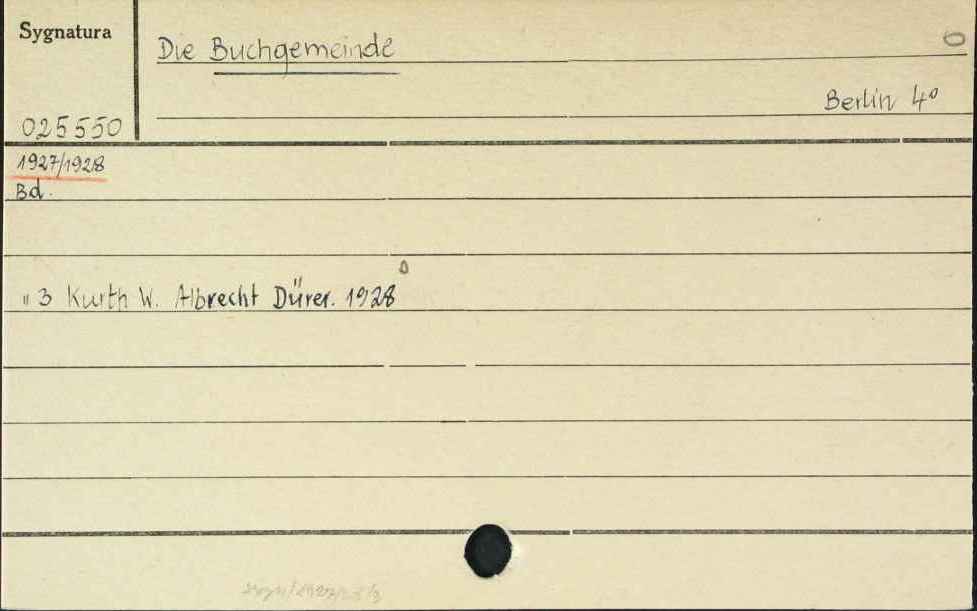 Sygnatura
Die Buchgemeinde
Berlin 4°
025550
1927/1928
Bd.
" 3 Kurth W. Albrecht Dürer. 1928